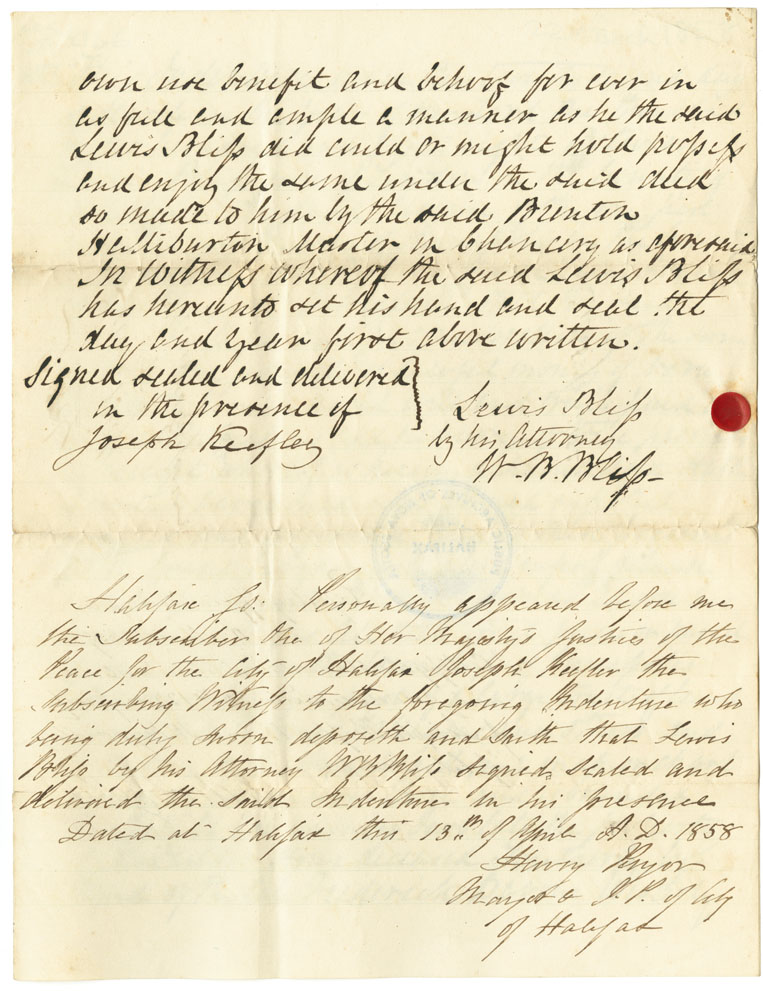 own use benefit and behoof for ever in
as full and ample a manner as he the said
Lewis Bliss did could or might hold possess
and enjoy the same under the said deed
so made to him by the said Brenton
Halliburton Master in Chancery as aforesaid
In Witness whereof the said Lewis Bliss
has hereunto set his hand and seal the
day and year first above written.
Signed sealed and delivered
in the presence of
Joseph Keefler
Lewis Bliss
by his Attorney
W. B. Bliss
Halifax Ss: Personally appeared before me
the Subscriber One of Her Majestys Justices of the
Peace for the City of Halifax Joseph Keefler the
Subscribing Witness to the foregoing Indenture who
being duly sworn deposeth and saith that Lewis
Bliss by his Attorney W B Bliss signed, sealed and
delivered the said Indenture in his presence
Dated at Halifax this 13th of April A.D. 1858
Henry Pryor
Mayor & J. P. of City
of Halifax